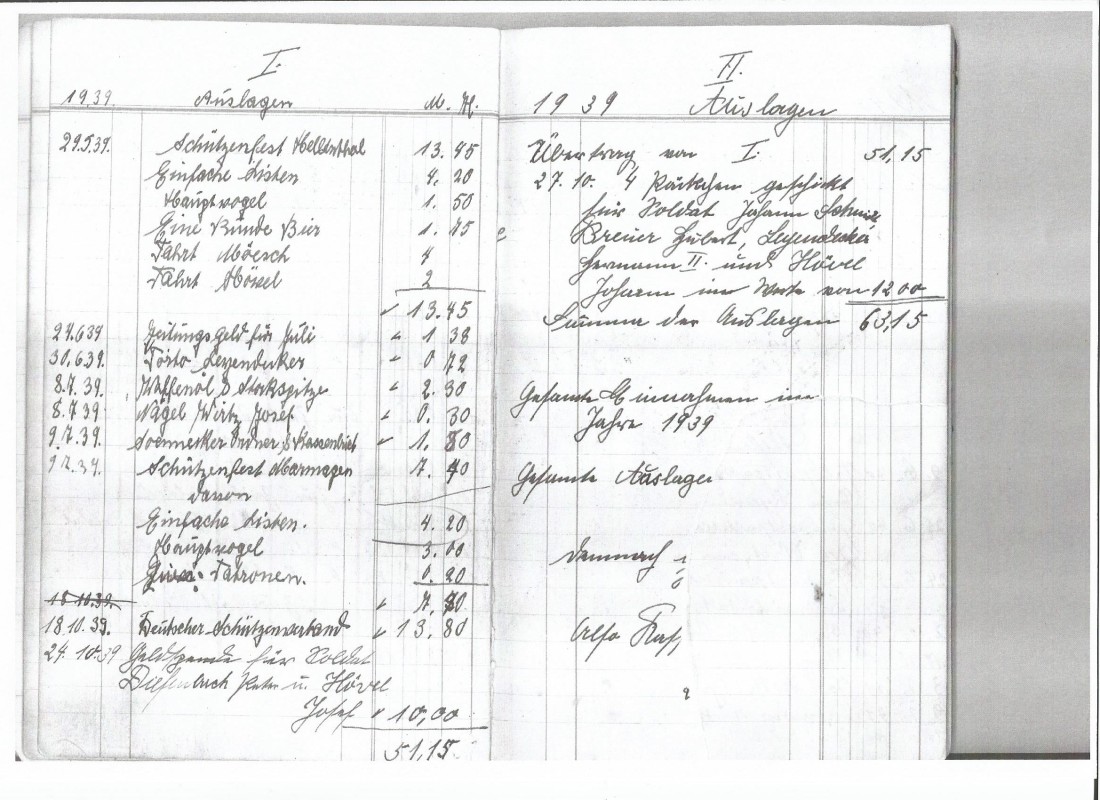 I.
1939. Auslagen M. Pf.
29.5.39. Schützenfest Hellenthal 13.45
Einfache Listen 4.20
Hauptvogel 1.50
Eine Runde Bier 1.75
Fahrt 4
Fahrt 2
13.45
29.6.39 Zeitungsgeld für Juli 1 38
30.6.39. Porto Leyendecker 0 72
8.7.39. Waffenöl & Stockspitze 2.30
8.7.39 Nägel Wirtz Josef 0.30
9.7.39. Soennecker Ordner & Kassenbuch 1.80
9.7.39. Schützenfest Marmagen 7.40
davon
Einfache Listen. 4.20
Hauptvogel 3.00
Patronen. 0.20
18.10.39.
18.10.39. Deutscher Schützenverband 13.80
24.10.39 Geldspende für Soldat
Diefenbach Peter u. Hövel
Josef 10,00
51,15.
II.
1939 Auslagen
Übertrag von I. 51,15
27.10. 4 Päckchen geschickt
für Soldat Johann
Breuer Hubert, Leyendecker
Hermann II. und Hövel
Johann im Werte von 12 00
Summa der Auslagen 63,15
Gesamte Einnahmen im
Jahre 1939
Gesamte Auslagen
Demnach
Also